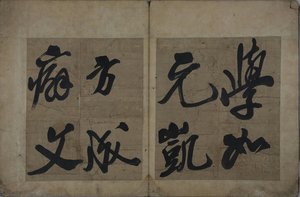 學如
元凱
方成
癖文